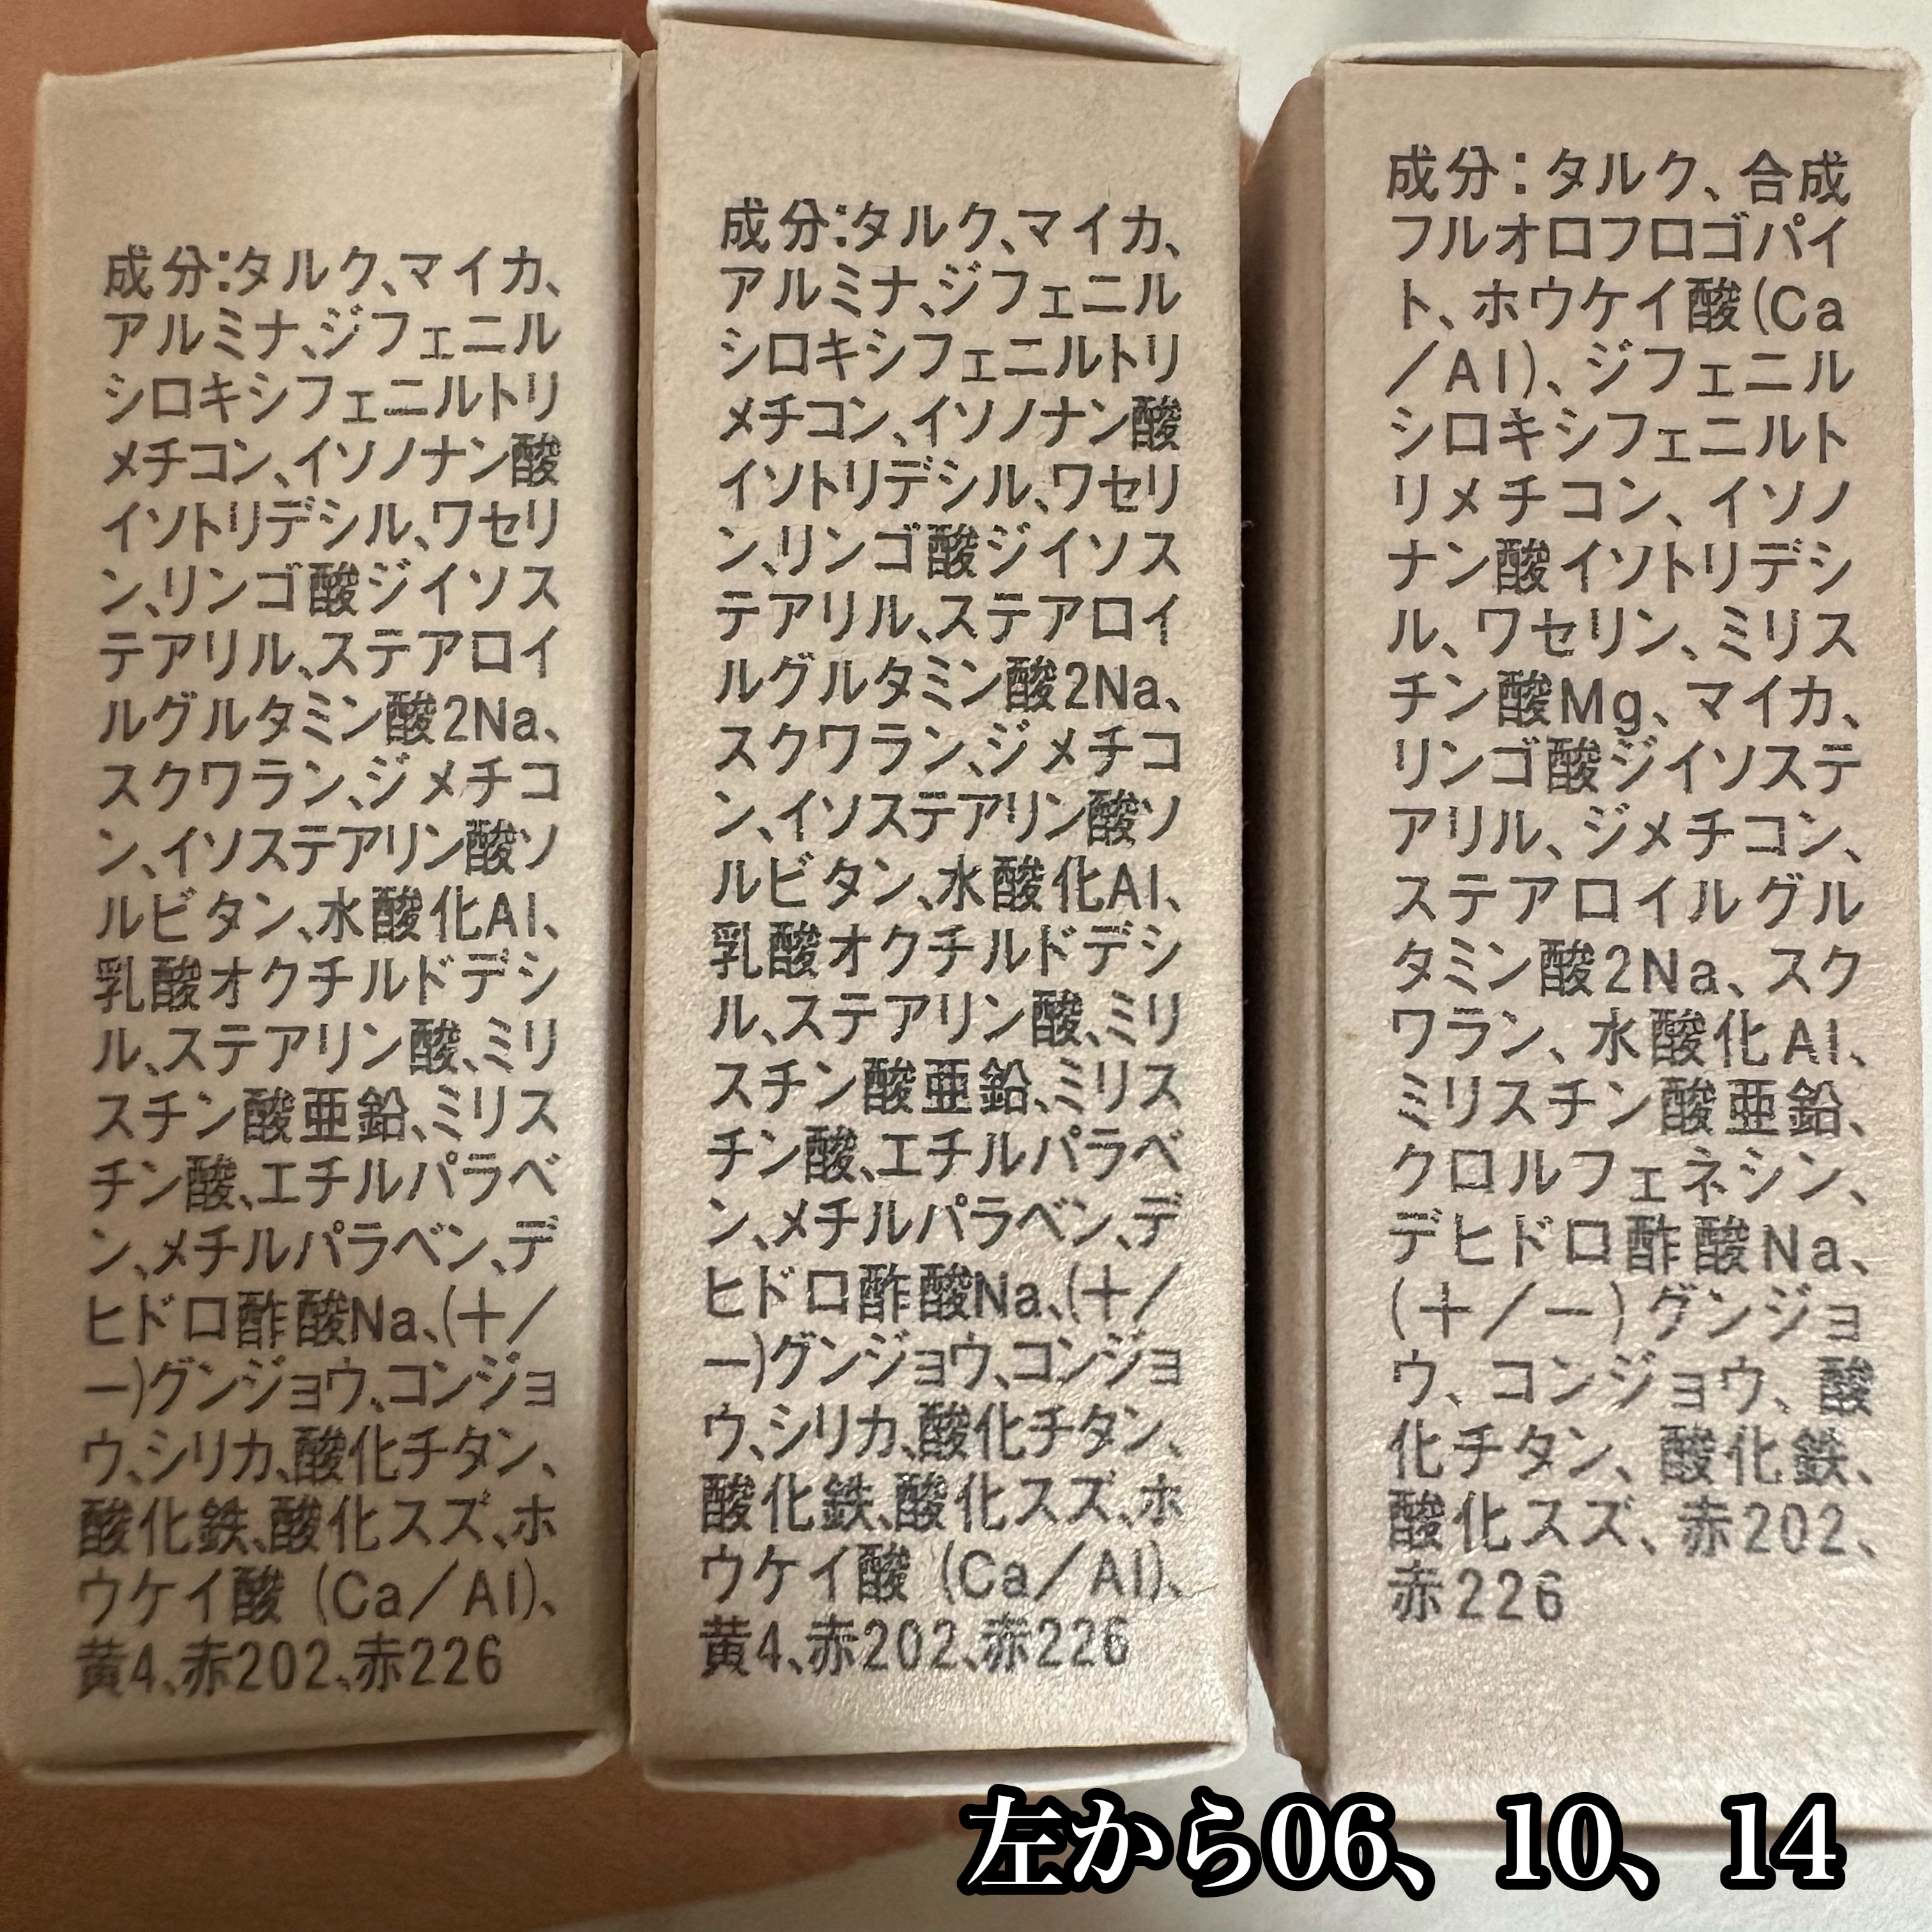 成分:タルク、マイカ、
アルミナ、ジフェニル
シロキシフェニルトリ
メチコン、イソノナン酸
イソトリデシル、ワセリ
ン、リンゴ酸ジイソス
テアリル、ステアロイ
ルグルタミン酸2Na、
スクワラン、ジメチコ
ン、イソステアリン酸ソ
ルビタン、水酸化Al、
乳酸オクチルドデシ
ル、ステアリン酸、ミリ
スチン酸亜鉛、ミリス
チン酸、エチルパラベ
ン、メチルパラベン、デ
ヒドロ酢酸Na、(＋／
ー)グンジョウ、コンジョ
ウ、シリカ、酸化チタン、
酸化鉄、酸化スズ、ホ
ウケイ酸 (Ca／Al)、
黄4、赤202、赤226
成分:タルク、マイカ、
アルミナ、ジフェニル
シロキシフェニルトリ
メチコン、イソノナン酸
イソトリデシル、ワセリ
ン、リンゴ酸ジイソス
テアリル、ステアロイ
ルグルタミン酸2Na、
スクワラン、ジメチコ
ン、イソステアリン酸ソ
ルビタン、水酸化Al、
乳酸オクチルドデシ
ル、ステアリン酸、ミリ
スチン酸亜鉛、ミリス
チン酸、エチルパラベ
ン、メチルパラベン、デ
ヒドロ酢酸Na、(＋／
ー)グンジョウ、コンジョ
ウ、シリカ、酸化チタン、
酸化鉄、酸化スズ、ホ
ウケイ酸 (Ca／Al)、
黄4、赤202、赤226
成分：タルク、合成
フルオロフロゴパイ
ト、ホウケイ酸(Ca
／Al)、ジフェニル
シロキシフェニルト
リメチコン、イソノ
ナン酸イソトリデシ
ル、ワセリン、ミリス
チン酸Mg、マイカ、
リンゴ酸ジイソステ
アリル、ジメチコン、
ステアロイルグル
タミン酸2Na、スク
ワラン、水酸化Al、
ミリスチン酸亜鉛、
クロルフェネシン、
デヒドロ酢酸Na、
(＋／ー)グンジョ
ウ、コンジョウ、酸
化チタン、酸化鉄、
酸化スズ、赤202、
赤226
左から06、10、14